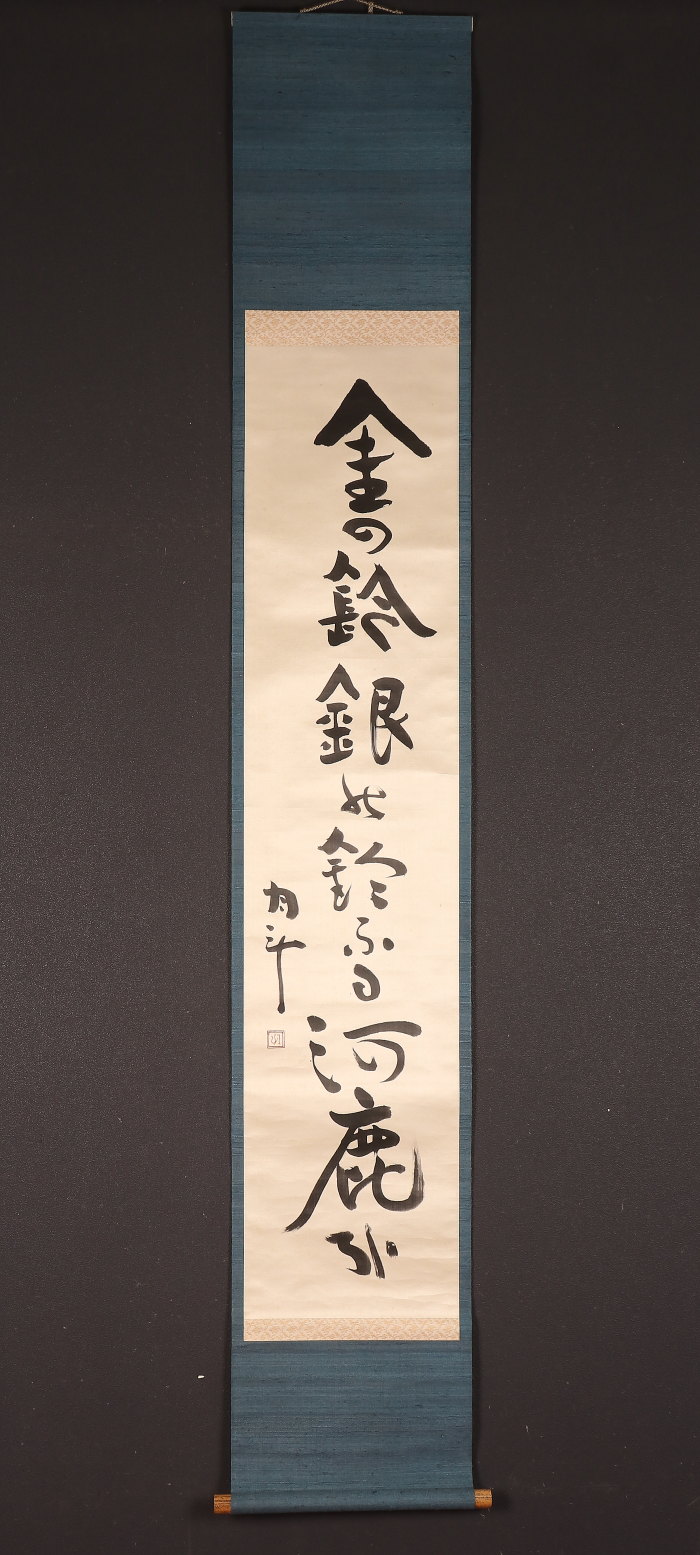 金の鈴銀の鈴ふる河鹿が
月斗